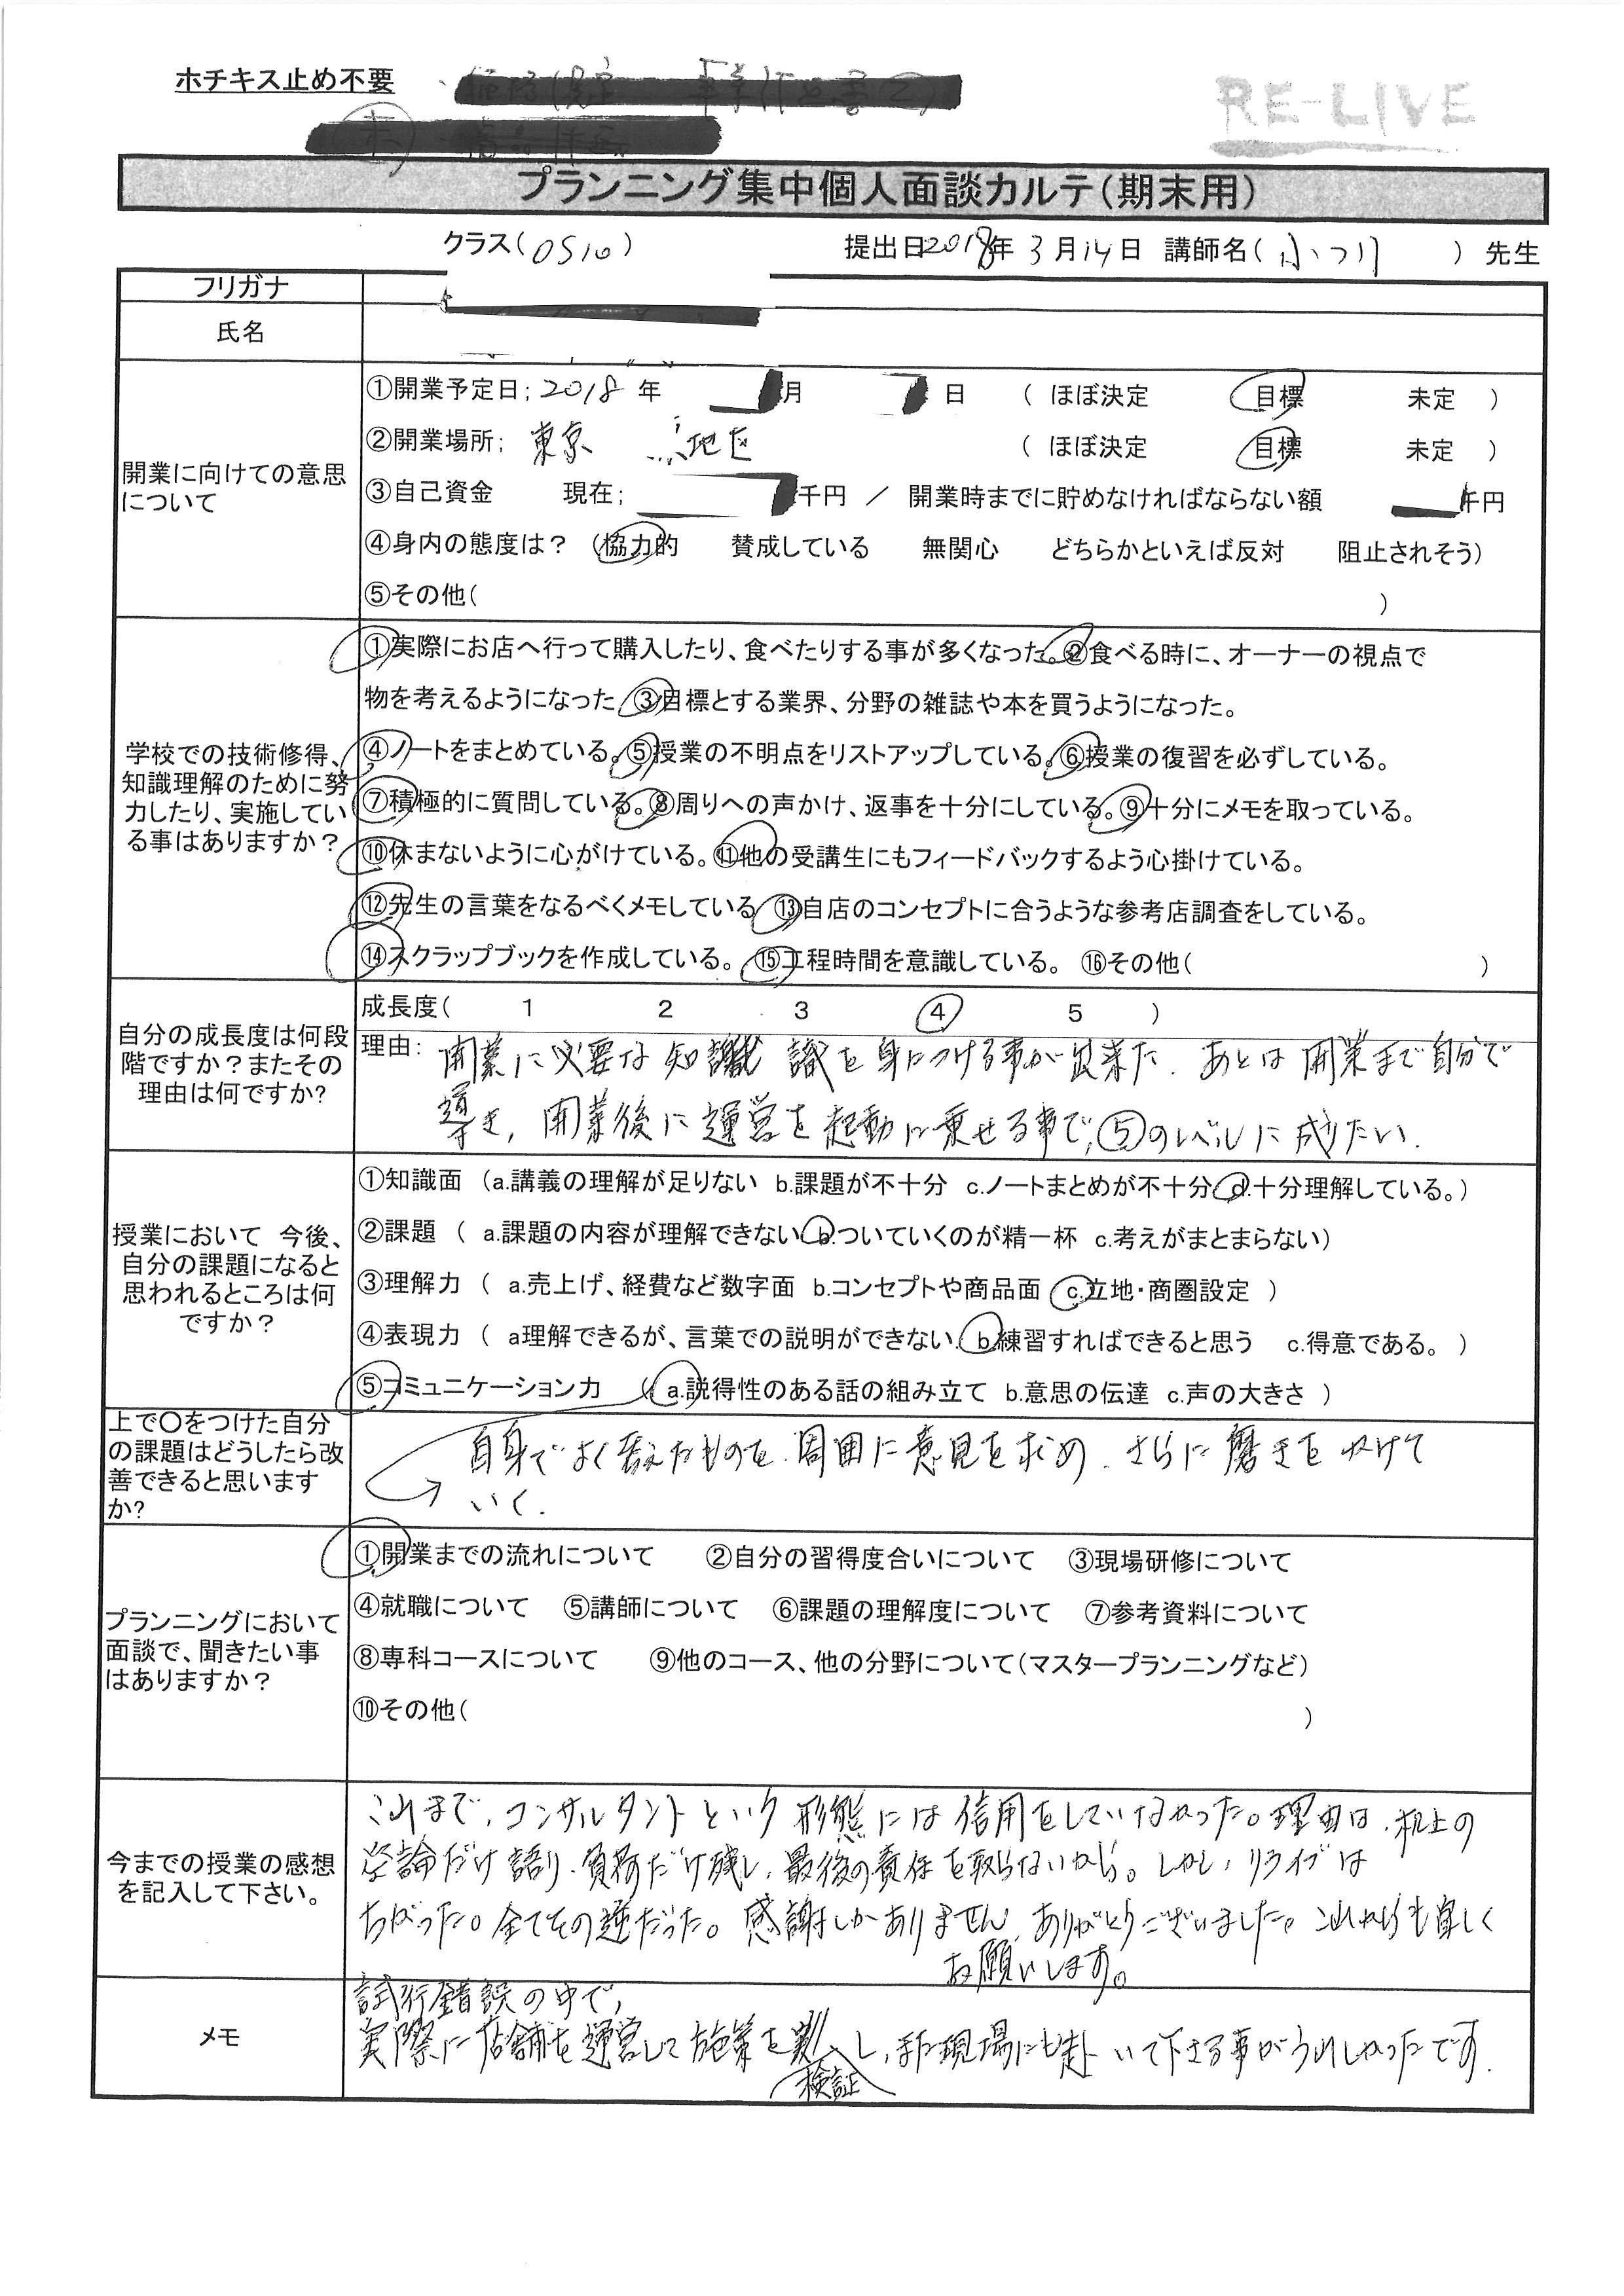 ホチキス止め不要
RE-LIVE
プランニング集中個人面談カルテ(期末用)
クラス(OS10) 提出日2018年3月14日 講師名( ) 先生
フリガナ
氏名
開業に向けての意思
について
①開業予定日;2018年 月 日 ( ほぼ決定 目標 未定 )
②開業場所; 東京 地区 ( ほぼ決定 目標 未定 )
③自己資金 現在; 千円 / 開業時までに貯めなければならない額 千円
④身内の態度は? (協力的 賛成している 無関心 どちらかといえば反対 阻止されそう)
⑤その他( )
学校での技術修得、
知識理解のために努
力したり、実施してい
る事はありますか?
①実際にお店へ行って購入したり、食べたりする事が多くなった。②食べる時に、オーナーの視点で
物を考えるようになった ③目標とする業界、分野の雑誌や本を買うようになった。
④ノートをまとめている。⑤授業の不明点をリストアップしている。⑥授業の復習を必ずしている。
⑦積極的に質問している。⑧周りへの声かけ、返事を十分にしている。⑨十分にメモを取っている。
⑩休まないように心がけている。⑪他の受講生にもフィードバックするよう心掛けている。
⑫先生の言葉をなるべくメモしている ⑬自店のコンセプトに合うような参考店調査をしている。
⑭スクラップブックを作成している。 ⑮工程時間を意識している。 ⑯その他( )
自分の成長度は何段
階ですか?またその
理由は何ですか?
成長度( 1 2 3 4 5 )
理由: 開業に必要な知 識を身につける事が出来た. あとは開業まで自分で
導き, 開業後に運営を起動に乗せる事で,⑤のレベルに成りたい.
授業において 今後、
自分の課題になると
思われるところは何
ですか?
①知識面 (a.講義の理解が足りない b.課題が不十分 c.ノートまとめが不十分 d.十分理解している。)
②課題 ( a.課題の内容が理解できない b.ついていくのが精一杯 c.考えがまとまらない)
③理解力 ( a.売上げ、経費など数字面 b.コンセプトや商品面 c.立地・商圏設定 )
④表現力 ( a理解できるが、言葉での説明ができない b.練習すればできると思う c.得意である。 )
⑤コミュニケーション力 (a.説得性のある話の組み立て b.意思の伝達 c.声の大きさ )
上で○をつけた自分
の課題はどうしたら改
善できると思います
か?
自身でよく考えたものを.周囲に意見を求め.さらに磨きをかけて
いく.
プランニングにおいて
面談で、聞きたい事
はありますか?
①開業までの流れについて ②自分の習得度合いについて ③現場研修について
④就職について ⑤講師について ⑥課題の理解度について ⑦参考資料について
⑧専科コースについて ⑨他のコース、他の分野について(マスタープランニングなど)
⑩その他( )
今までの授業の感想
を記入して下さい。
これまで,コンサルタントという形態には信用をしていなかった。理由は,机上の
空論だけ語り.負荷だけ残し,最後の責任を取らないから。しかし,リライブは
ちがった。全てその逆だった。感謝しかありません.ありがとうございました。これからも宜しく
お願いします。
メモ
試行錯誤の中で,
実際に店舗を運営して施策を し,また現場にも赴いて下さる事がうれしかったです.
検証